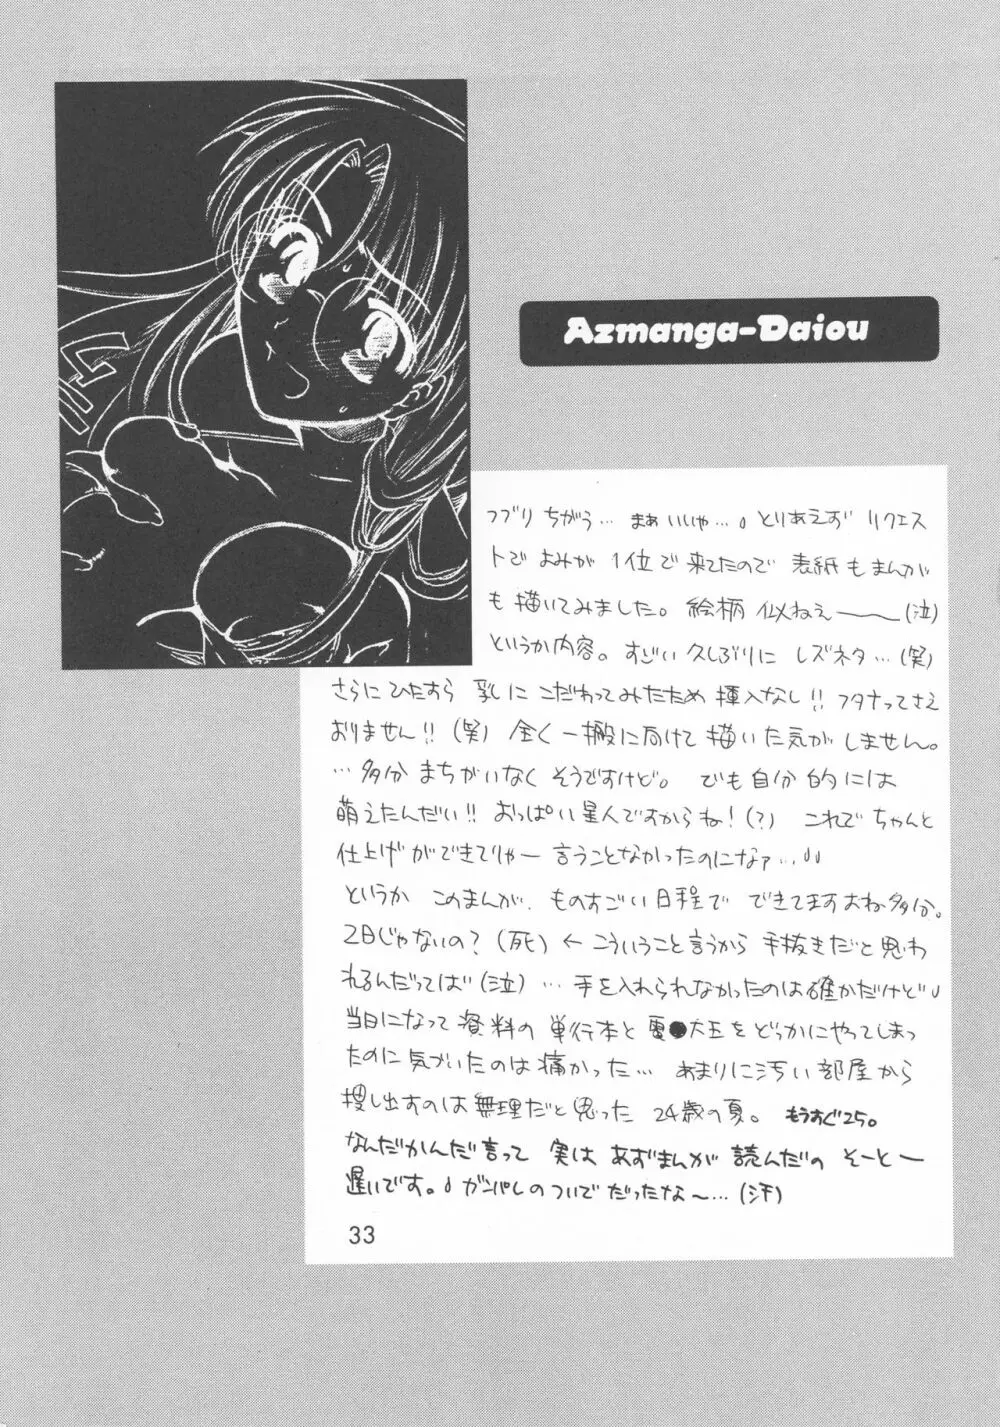 Azmanga-Daiou
つづり ちがう… まぁいいや…。とりあえず リクエス
トで よみが 1位で 来てたので 表紙もまんが
も描いてみました。絵柄 似ねぇ――(泣)
というか内容。すごい久しぶりに レズネタ…(笑)
さらにひたすら 乳に こだわってみたため 挿入なし!! フタナってさえ
おりません!! (笑) 全く一般に向けて 描いた気が しません。
…多分 まちがいなく そうですけど。 でも自分的には
萌えたんだい!! おっぱい星人ですからね!(?) これで ちゃんと
仕上げができてりゃー 言うことなかったのになァ…
というか このまんが、ものすごい日程で できてますよね多分。
2日じゃないの? (死) ← こういうこと言うから 手抜きだと思わ
れるんだってば (泣) … 手を入れられなかったのは確かだけど
当日になって 資料の 単行本と 電●大王を どっかにやってしまっ
たのに気づいたのは 痛かった… あまりに汚い部屋から
捜し出すのは無理だと思った 24歳の夏。 もうすぐ25。
なんだかんだ言って 実は あずまんが 読んだの そーとー
遅いです。 ガンパレのついでだったな～…(汗)
33